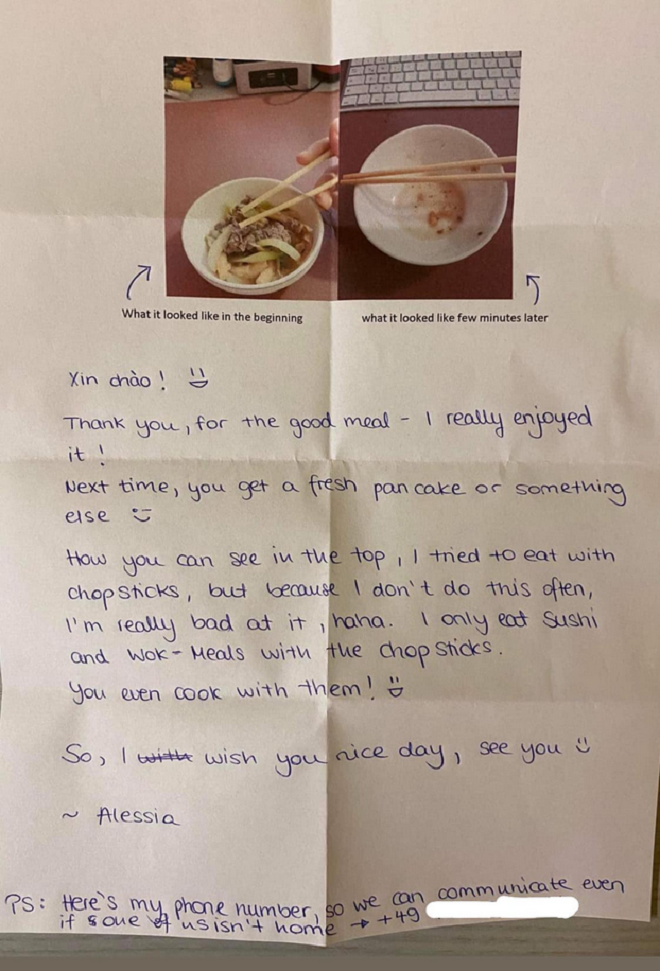 What it looked like in the beginning
what it looked like few minutes later
Xin chào!
Thank you, for the good meal - I really enjoyed
it!
Next time, you get a fresh pan cake or something
else
How you can see in the top, I tried to eat with
chopsticks, but because I don't do this often,
I'm really bad at it, haha. I only eat Sushi
and Wok-Meals with the chopsticks.
You even cook with them!
So, I with wish you nice day, see you
~ Alessia
PS: Here's my phone number, so we can communicate even
if some of us isn't home → +49